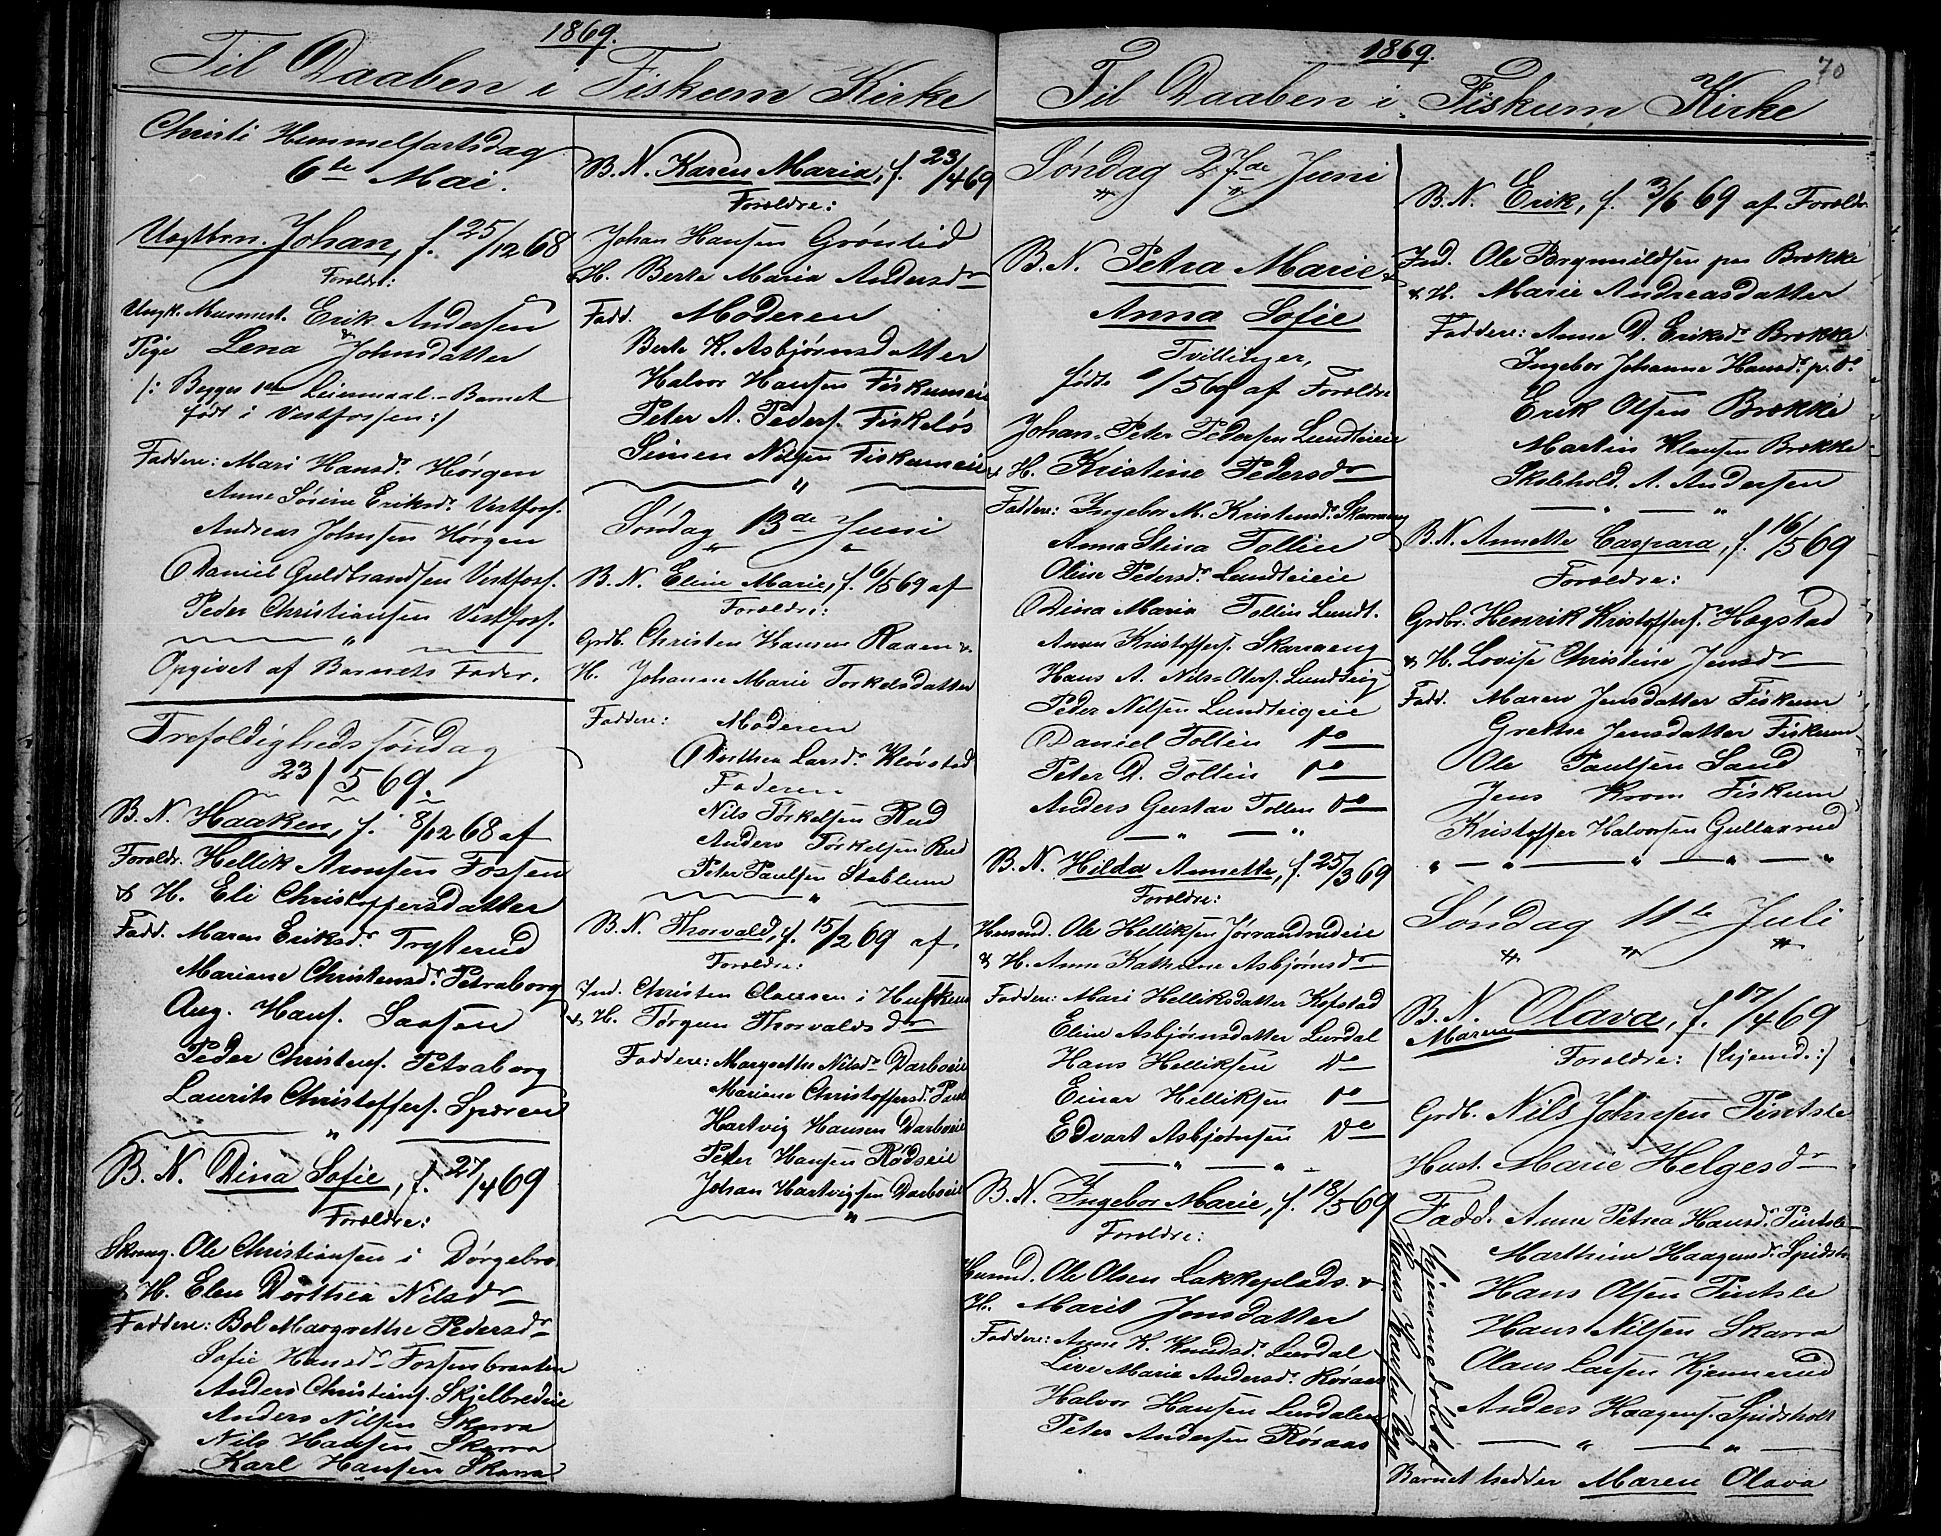 1869.
Til Daaben i Fiskum Kirke
Christi Himmelfartsdag
6te Mai.
Uægtbrn. Johan, f. 25/12 68
Forældre:
Ungk. Murmest. Erik Andersen
&
Pige Lena Johnsdatter
/: Begges 1ste Leiermaal - Barnet
født i Vestfossen :/
Faddere: Mari Hansdr. Hørgen
Anne Sørine Eriksdr. Vestfoss.
Andreas Johnsen Hørgen
Daniel Guldbrandsen Vestfoss.
Peder Christiansen Vestfoss.
"
Opgivet af Barnets Fader.
Trefoldigheds søndag
23/5 69.
B. N. Haaken, f. 8/12 68 af
Forældr. Hellik Arnesen Fossen
& H. Eli Christoffersdatter
Fadd. Maren Eriksdr. Tryterud
Mariane Christensdr. Petraborg
Aug. Hans.
Peder Christens. Petraborg
Laurits Christoffers. Spæren
"
B. N. Dina Sofie, f. 27/4 69
Forældre:
Ole Christiansen i Dørgebro
& H. Elen Dorthea Nilsdr
Faddere: Bol Margrethe Pedersdr
Sofie Hansdr Fossenbraaten
Anders Christians. Skjelbredeie
Anders Nilsen Skarra
Nils Hansen Skarra
Karl Hansen Skarra
B. N. Karen Maria, f. 23/4 69
Forældre:
Johan Hansen Grøntid
& H. Berte Maria Andersdr
Fadd. Moderen
Berte K. Asbjørnsdatter
Halvor Hansen Fiskumeie
Peter A. Peders. Fiskeløs
Simen Nilsen Fiskumeie
"
Søndag 13de Juni
B. N. Eline Marie, f. 6/5 69 af
Forældre:
Grdb. Christen Hansen Raaen &
H. Johanne Marie Torkelsdatter
Faddere: Moderen
Dorthea Larsdr. Kløvstad
Faderen
Nils Torkelsen Rud
Anders Torkelsen Rud
Peter Paulsen Stablum
"
B. N. Thorvald, f. 15/2 69 af
Forældre:
Ind. Christen Olaussen i
& H. Jørgun Thorvaldsdr
Faddere: Margrethe Nilsdr Darboeie
Mariane Christoffersdr.
Hartvig Hansen Darboeie
Peter Hansen Rødseie
Johan Hartvigsen Darboeie
"
1869.
70
Til Daaben i Fiskum Kirke
Søndag 27de Juni
B. N. Petra Marie &
Anna Sofie
Tvillinger,
fødte /5 69 af Forældre
Johan Peter Pedersen Lundteieie
& H. Kristine Pedersdr
Faddere: Ingebor M. Kristensdr. Skarraeng
Anna Stina Tollin
Oline Pedersdr. Lundteieie
Dina Maria Tollin Lundt.
Anne Kristoffers. Skarraeng
Hans A. Nils-Olers. Lundteig
Peder Nilsen Lundteigeie
Daniel Tollin do
Peter D. Tollin do
Anders Gustav Tollin do
"
B. N. Hilda Annette, f. 25/3 69
Forældre:
Husmd. Ole Helliksen Jørrandrudeie
& H. Anne Kathrine Asbjørnsdr
Faddere: Mari Helliksdatter Kopstad
Eline Asbjørnsdatter Lurdal
Hans Helliksen do
Einar Helliksen do
Edvart Asbjørnsen do
"
B. N. Ingebor Marie, f. 18/5 69
Forældre:
Husmd. Ole Olsen Lakkeplads &
H. Marit Jonsdatter
Faddere: Anne K. Knudsdr. Lurdal
Live Maria Andersdr. Røraas
Halvor Hansen Lurdalen
Peter Andersen Røraas
B. N. Erik, f. 3/6 69 af Forældr
Ind. Ole Brynnildsen paa Brekke
& H. Marie Andreasdatter
Faddere: Anne D. Eriksdr Brekke
Ingebor Johanne Hansdr. p. do.
Erik Olsen Brekke
Martin Klausen Brekke
Skolehold. A. Andersen
"
B. N. Annette Caspara, f. 16/5 69
Forældre:
Grdbr. Henrik Kristoffers. Hægstad
& H. Lovise Christine Jensdr
Fadd. Maren Jensdatter Fiskum
Grethe Jensdatter Fiskum
Ole Paulsen Sand
Jens Krom Fiskum
Kristoffer Halvorsen Gullaxrud
" " " "
Søndag 11te Juli
B. N. Olava, f. 17/4 69
Maren
Forældre: (hjemd:)
Grdb. Nils Johnsen Tintsle
Hust. Marie Helgesdr
Fadd. Anne Petrea Hansdr. Tintsle
Marthine Haagensdr. Spidsh
Hans Olsen Tintsle
Hans Nilsen Skarra
Olaus Larsen Kjennerud
Anders Haagens. Spidsholt
" "
Barnet hedder Maren Olava
hjemmedøbt af
Hans Hansen